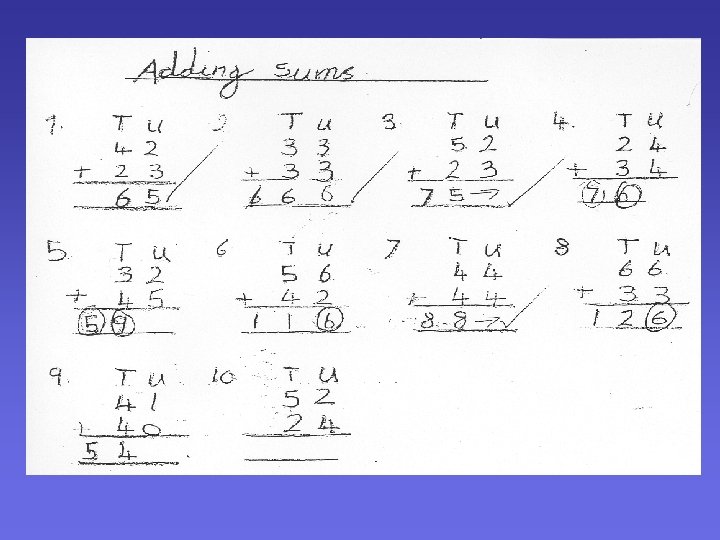 Adding sums
1. T U 2 T U 3. T U 4. T U
4 2 3 3 5 2 2 4
+ 2 3 + 3 3 + 2 3 + 3 4
6 5 6 6 6 7 5 7 6
5. T U 6 T U 7 T U 8 T U
3 2 5 6 4 4 6 6
+ 4 5 + 4 2 + 4 4 + 3 3
5 9 1 1 6 8 8 1 2 6
9. T U 10 T U
4 1 5 2
+ 4 0 2 4
5 4